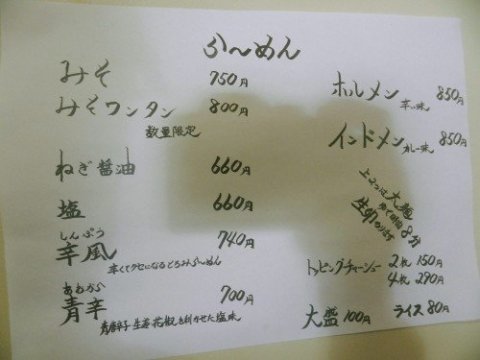 らーめん
みそ 750円
みそワンタン 800円
数量限定
ねぎ醤油 660円
塩 660円
しんぷう
辛風 740円
辛くてクセになるとろみらーめん
あおから
青辛 700円
青唐辛子 生姜 花椒を利かせた塩味
ホルメン 850円
辛い味
インドメン 850円
カレー味
上2つは大麺
ゆで時間8分
生卵
トッピングチャーシュー 2枚 150円
4枚 290円
大盛 100円 ライス 80円